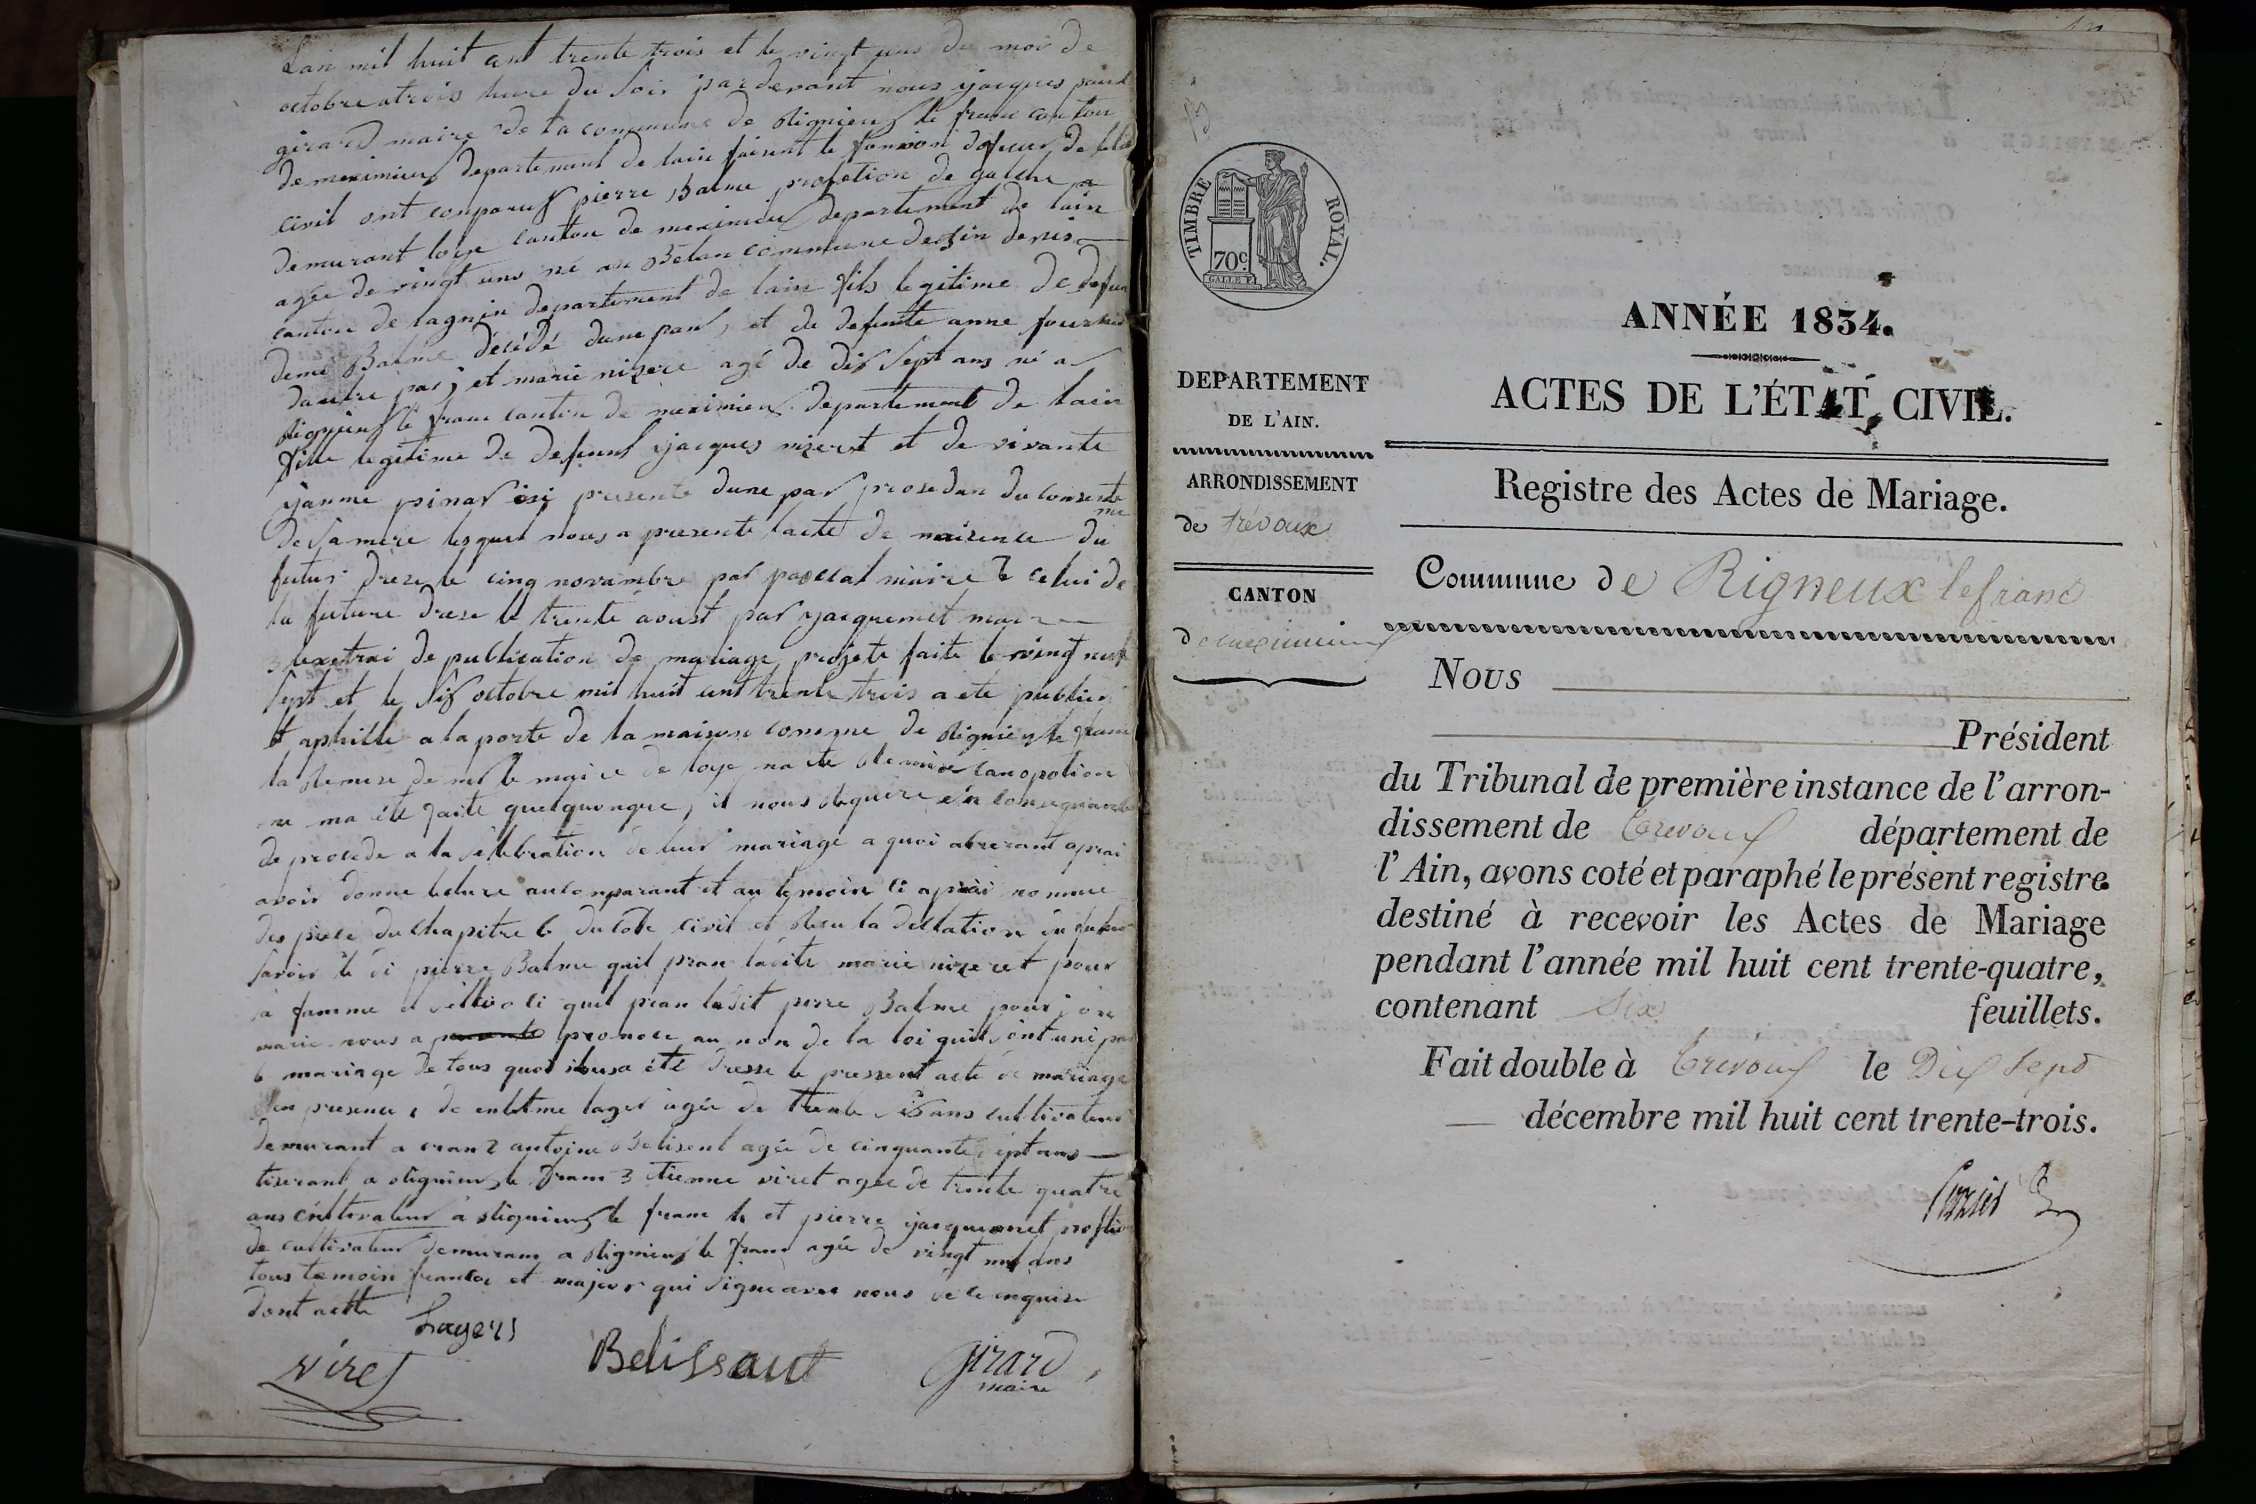 Lan mil huit cent trente trois et le vingt uns du moi de
octobre atrois heure du soir pardevant nous jacques
girard maire de la commune de Rignieux le franc canton
de meximieux departement de lain faisant le
civil ont comparus pierre Balme profetion de
demurant loye canton de meximieux departement de lain
agée de vingt uns né au commune
canton de lagnieu departement de lain fils legitime de
Balme décédé dune part, et de defunte anne
dautre par, et marie nizere agé de dix sept ans né a
Rignieux le franc canton de meximieux departement de lain
fille legitime de defunt jacques nizeret et de vivante
jeanne pinar isi presente dune par
de Sa mere lesquel nous a presente lacte de naisence du
futur dreze le cinq novambre par pascal maire & celui de
la future dreze le trente aoust par jacquemet maire
lextrai de publication de mariage projete faite le vingt neuf
Sept et le Six octobre mil huit cent trente trois a eté publier
et a la porte de la maison comme de Rignieux le franc
la Remise de mr le maire de loye na ete
ne ma été faite quelquonque, il nous Require en
de procede a la Selebration de leur mariage a quoi aprai
avoir donne leture au comparant et au temoin ci aprai nomme
des piece du Chapitre 6 du Code civil et Resu la du futur
Savoir le di pierre Balme quil pran ladite marie nizeret pour
Sa famme et quel pran ledit pierre Balme pour Son
marie nous a pronoce au non de la loi quil Sont uni par
le mariage de tous quoi nous a été dresse le pressent acte de mariage
en presence, de lager agée de trente Six ans cultivateur
demurant a crans 2 antoine Belisent agée de cinquante Sept ans
tiserant a Rignieux le franc 3 etienne viret agée de trente quatre
ans cultivateur a Rignieux le franc 4 et pierre jacquemet
de cultivateur demurans a Rignieux le franc agée de vingt neuf ans
tous temoin et majeur qui Signe avec nous
dont actte
Layers
viret
Belissant
girard
maire
TIMBRE ROYAL.
70c.
DEPARTEMENT
DE L'AIN.
ARRONDISSEMENT
de trévoux
CANTON
de meximieux
ANNÉE 1834.
ACTES DE L'ÉTAT CIVIL.
Registre des Actes de Mariage.
Commune de Rigneux le franc
Nous
Président
du Tribunal de première instance de l'arron-
dissement de Trevoux département de
l'Ain, avons coté et paraphé le présent registre
destiné à recevoir les Actes de Mariage
pendant l'année mil huit cent trente-quatre,
contenant Six feuillets.
Fait double à Trevoux le Dix Sept
décembre mil huit cent trente-trois.